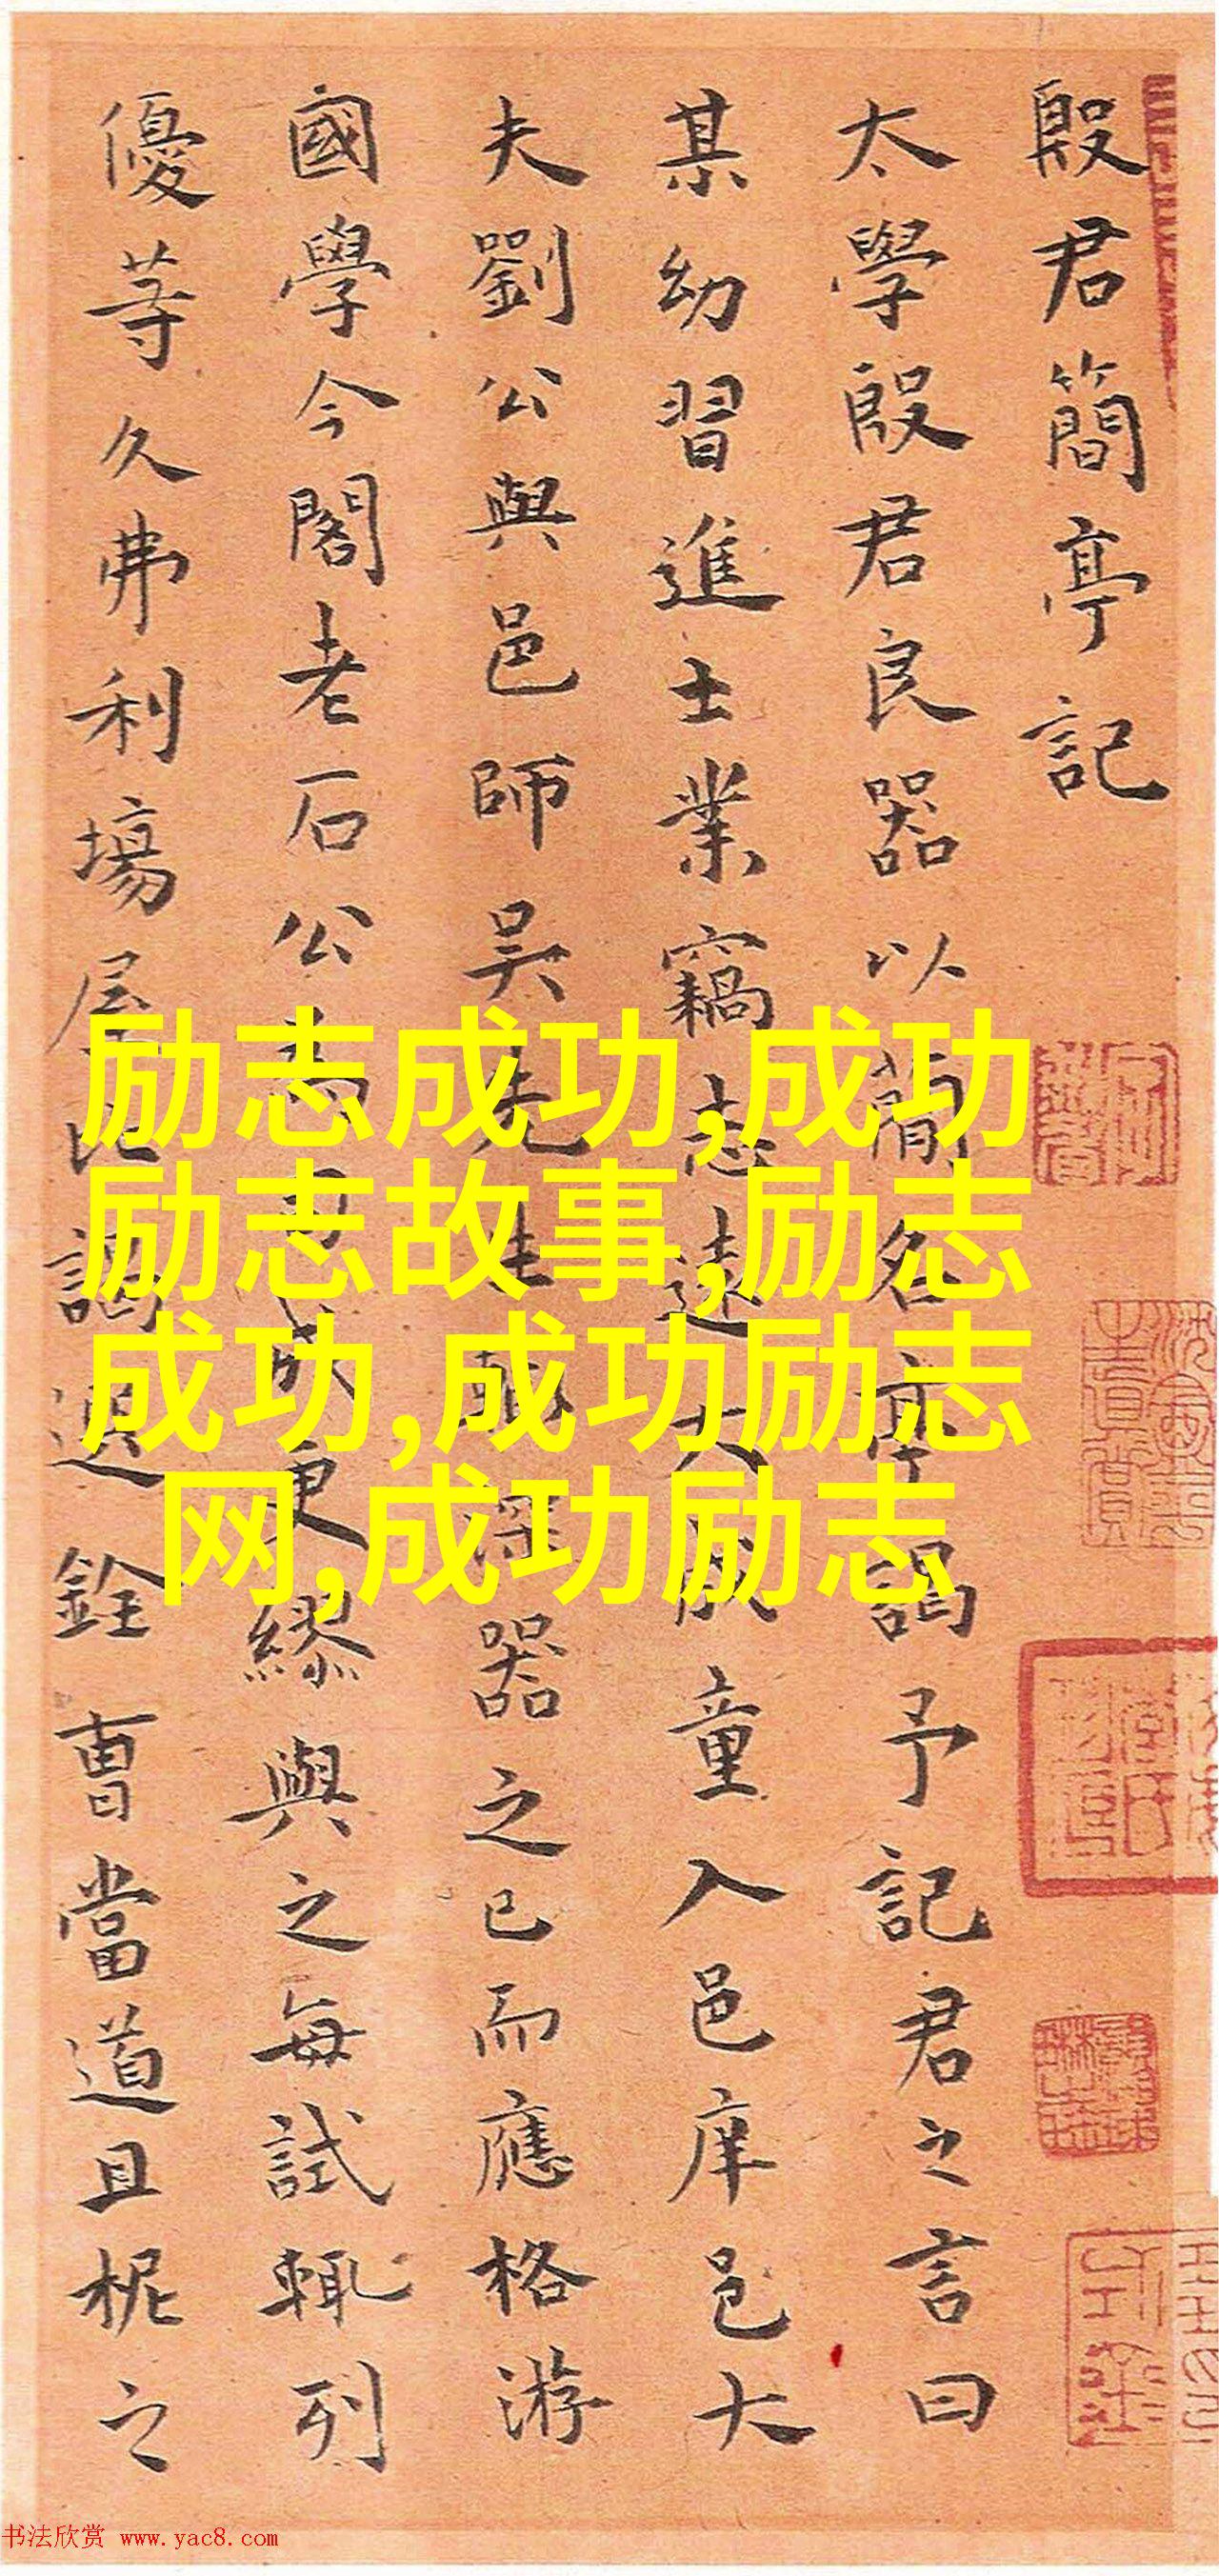 殷君簡亭記
太學殷君良器以簡名亭謁予記君之言曰
某幼習進士業竊志遠大成童入邑庠邑大
夫劉公與邑師吳先生聰深器之已而應格游
國學今閣老石公為司成更繆與之每試輒列
優等久弗利場屋比謁選銓曹當道且柅之
励志成功,成功
励志故事,励志
成功,成功励志
网,成功励志
书法欣赏 www.yac8.com